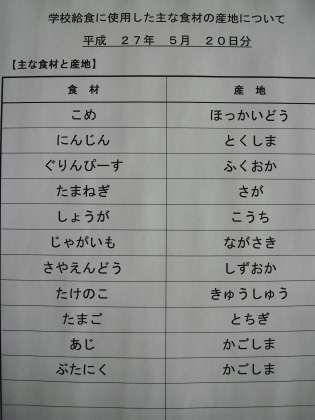 学校給食に使用した主な食材の産地について
平成 27年 5月 20日分
【主な食材と産地】
食 材 産 地
こめ ほっかいどう
にんじん とくしま
ぐりんぴーす ふくおか
たまねぎ さが
しょうが こうち
じゃがいも ながさき
さやえんどう しずおか
たけのこ きゅうしゅう
たまご とちぎ
あじ かごしま
ぶたにく かごしま